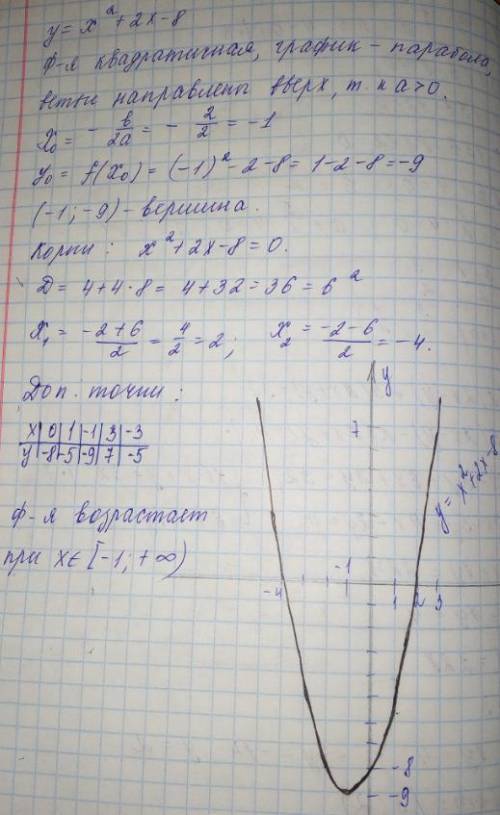 y = x² + 2x - 8
Ф-я квадратичная, график - парабола,
ветви направлены вверх, т.к a > 0.
x₀ = - b/2a = - 2/2 = -1
y₀ = f(x₀) = (-1)² - 2 - 8 = 1 - 2 - 8 = -9
(-1; -9) - вершина.
Корни: x² + 2x - 8 = 0.
Д = 4 + 4·8 = 4 + 32 = 36 = 6²
x₁ = (-2+6)/2 = 4/2 = 2; x₂ = (-2-6)/2 = -4.
Доп. точки:
x | 0 | 1 | -1 | 3 | -3
y | -8 | -5 | -9 | 7 | -5
Ф-я возрастает
при x ∈ [-1; +∞)
y
7
y = x² + 2x - 8
-1
-4 1 2 3
-8
-9